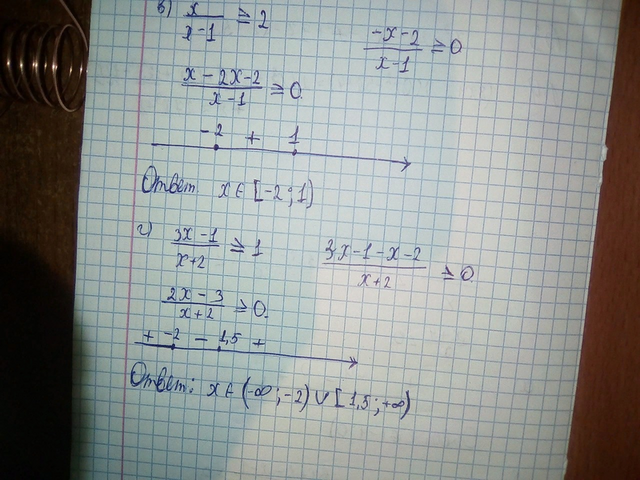 в) x/(x-1) ≥ 2
(-x-2)/(x-1) ≥ 0
(x-2x-2)/(x-1) ≥ 0
-2 + 1
Ответ. x ∈ [-2; 1)
г) (3x-1)/(x+2) ≥ 1
(3x-1-x-2)/(x+2) ≥ 0
(2x-3)/(x+2) ≥ 0.
+ -2 - 1,5 +
Ответ: x ∈ (-∞; -2) ∪ [1,5; +∞)